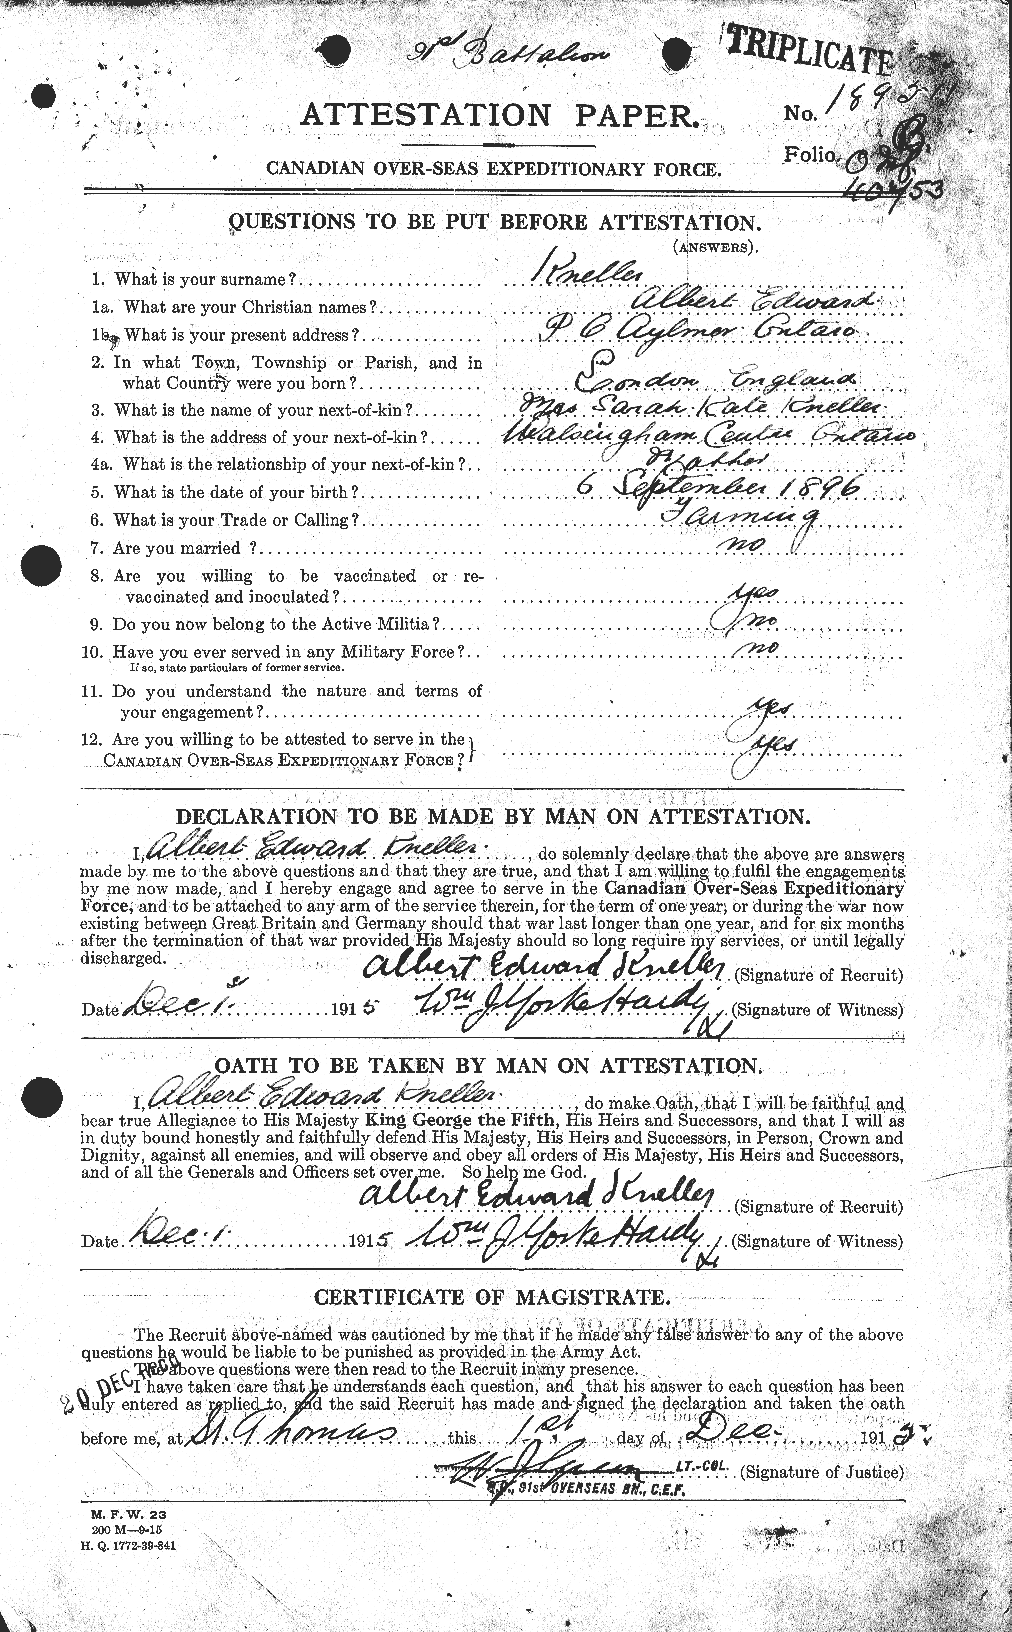 91st Battalion
TRIPLICATE
ATTESTATION PAPER.
No.
Folio.
CANADIAN OVER-SEAS EXPEDITIONARY FORCE.
QUESTIONS TO BE PUT BEFORE ATTESTATION.
(ANSWERS).
1. What is your surname? Kneller
1a. What are your Christian names? Albert Edward
1b. What is your present address? P O Aylmer Ontaro
2. In what Town, Township or Parish, and in
what Country were you born? London England
3. What is the name of your next-of-kin? Mrs Sarah Kate Kneller
4. What is the address of your next-of-kin? Walsingham Centre Ontario
4a. What is the relationship of your next-of-kin? Mother
5. What is the date of your birth? 6 September 1896
6. What is your Trade or Calling? Farming
7. Are you married? no
8. Are you willing to be vaccinated or re-
vaccinated and inoculated? yes
9. Do you now belong to the Active Militia? no
10. Have you ever served in any Military Force? no
If so, state particulars of former service.
11. Do you understand the nature and terms of
your engagement? yes
12. Are you willing to be attested to serve in the
CANADIAN OVER-SEAS EXPEDITIONARY FORCE? yes
DECLARATION TO BE MADE BY MAN ON ATTESTATION.
I, Albert Edward Kneller, do solemnly declare that the above are answers
made by me to the above questions and that they are true, and that I am willing to fulfil the engagements
by me now made, and I hereby engage and agree to serve in the Canadian Over-Seas Expeditionary
Force, and to be attached to any arm of the service therein, for the term of one year, or during the war now
existing between Great Britain and Germany should that war last longer than one year, and for six months
after the termination of that war provided His Majesty should so long require my services, or until legally
discharged.
Albert Edward Kneller (Signature of Recruit)
Date Dec 1st 1915 Wm J Yorke Hardy Lt (Signature of Witness)
OATH TO BE TAKEN BY MAN ON ATTESTATION.
I, Albert Edward Kneller, do make Oath, that I will be faithful and
bear true Allegiance to His Majesty King George the Fifth, His Heirs and Successors, and that I will as
in duty bound honestly and faithfully defend His Majesty, His Heirs and Successors, in Person, Crown and
Dignity, against all enemies, and will observe and obey all orders of His Majesty, His Heirs and Successors,
and of all the Generals and Officers set over me. So help me God.
Albert Edward Kneller (Signature of Recruit)
Date Dec. 1. 1915 Wm J Yorke Hardy Lt (Signature of Witness)
CERTIFICATE OF MAGISTRATE.
The Recruit above-named was cautioned by me that if he made any false answer to any of the above
questions he would be liable to be punished as provided in the Army Act.
The above questions were then read to the Recruit in my presence.
20 DEC
I have taken care that he understands each question, and that his answer to each question has been
duly entered as replied to, and the said Recruit has made and signed the declaration and taken the oath
before me, at St. Thomas this 1st day of Dec. 1915
LT.-COL. (Signature of Justice)
O.C., 91st OVERSEAS BN., C.E.F.
M. F. W. 23
200 M—9-15
H. Q. 1772-39-841